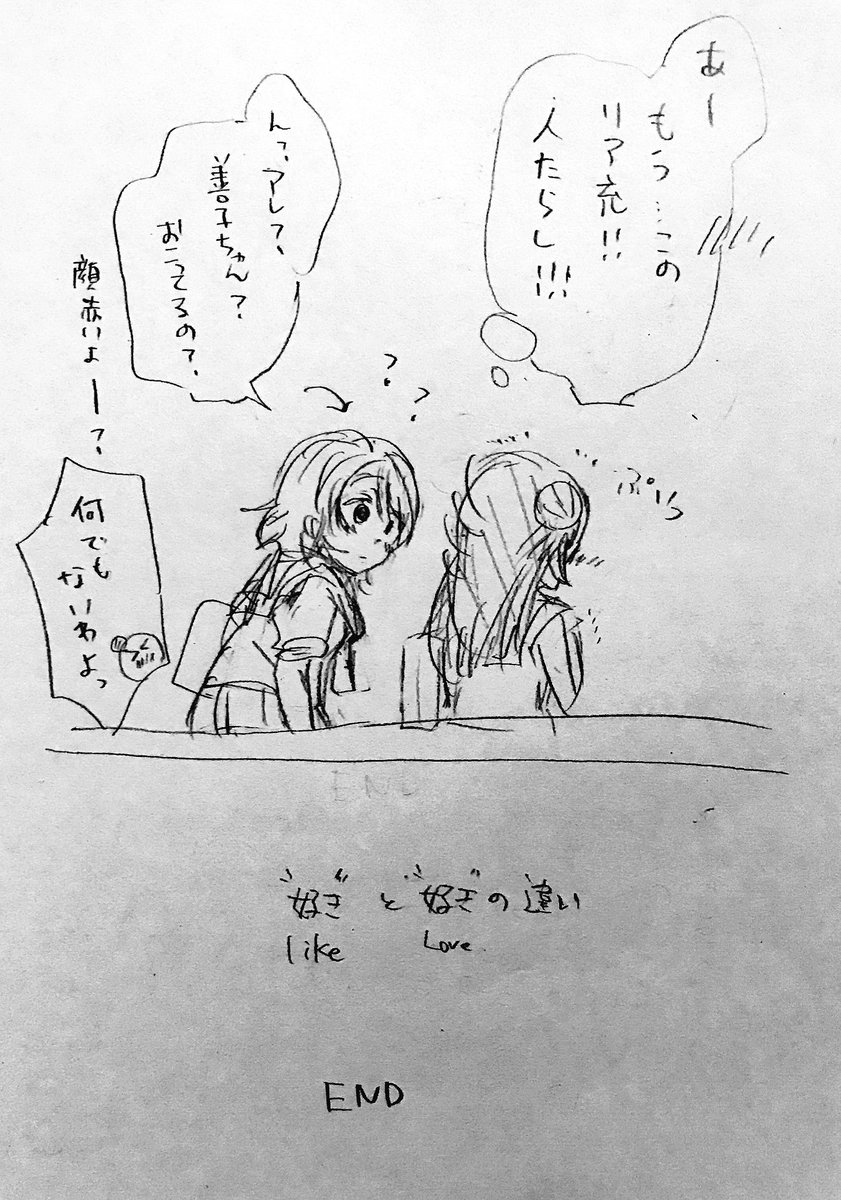 あー
もう…この
リア充!!
人たらし!!!
ん?、アレ?、
善子ちゃん?
おこってるの?、
顔赤いよー?、
何でも
ないわよっ
? ?
ぷいっ
END
"好き"と"好き"の違い
like Love
END